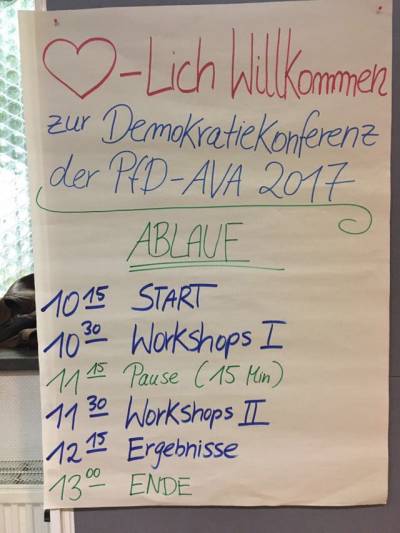 -Lich Willkommen
zur Demokratiekonferenz
der PfD-AVA 2017
ABLAUF
10 15 START
10 30 Workshops I
11 15 Pause (15 Min)
11 30 Workshops II
12 15 Ergebnisse
13 00 ENDE